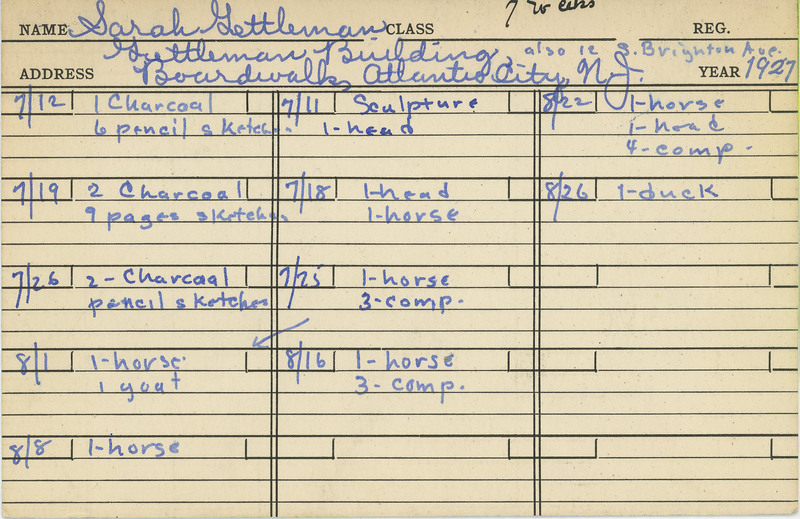 7 weeks
NAME Sarah Gettleman CLASS REG.
Gettleman Building, also 12 S. Brighton Ave.
ADDRESS Boardwalk, Atlantic City, N.J. YEAR 1927
7/12 1 Charcoal
6 pencil sketch
7/19 2 Charcoal
9 pages sketches
7/26 2 - Charcoal
pencil sketches
8/1 1-horse
1 goat
8/8 1-horse
7/11 Sculpture
1-head
7/18 1-head
1-horse
7/25 1-horse
3-comp.
8/16 1-horse
3-comp.
8/22 1-horse
1-head
4-comp.
8/26 1-duck